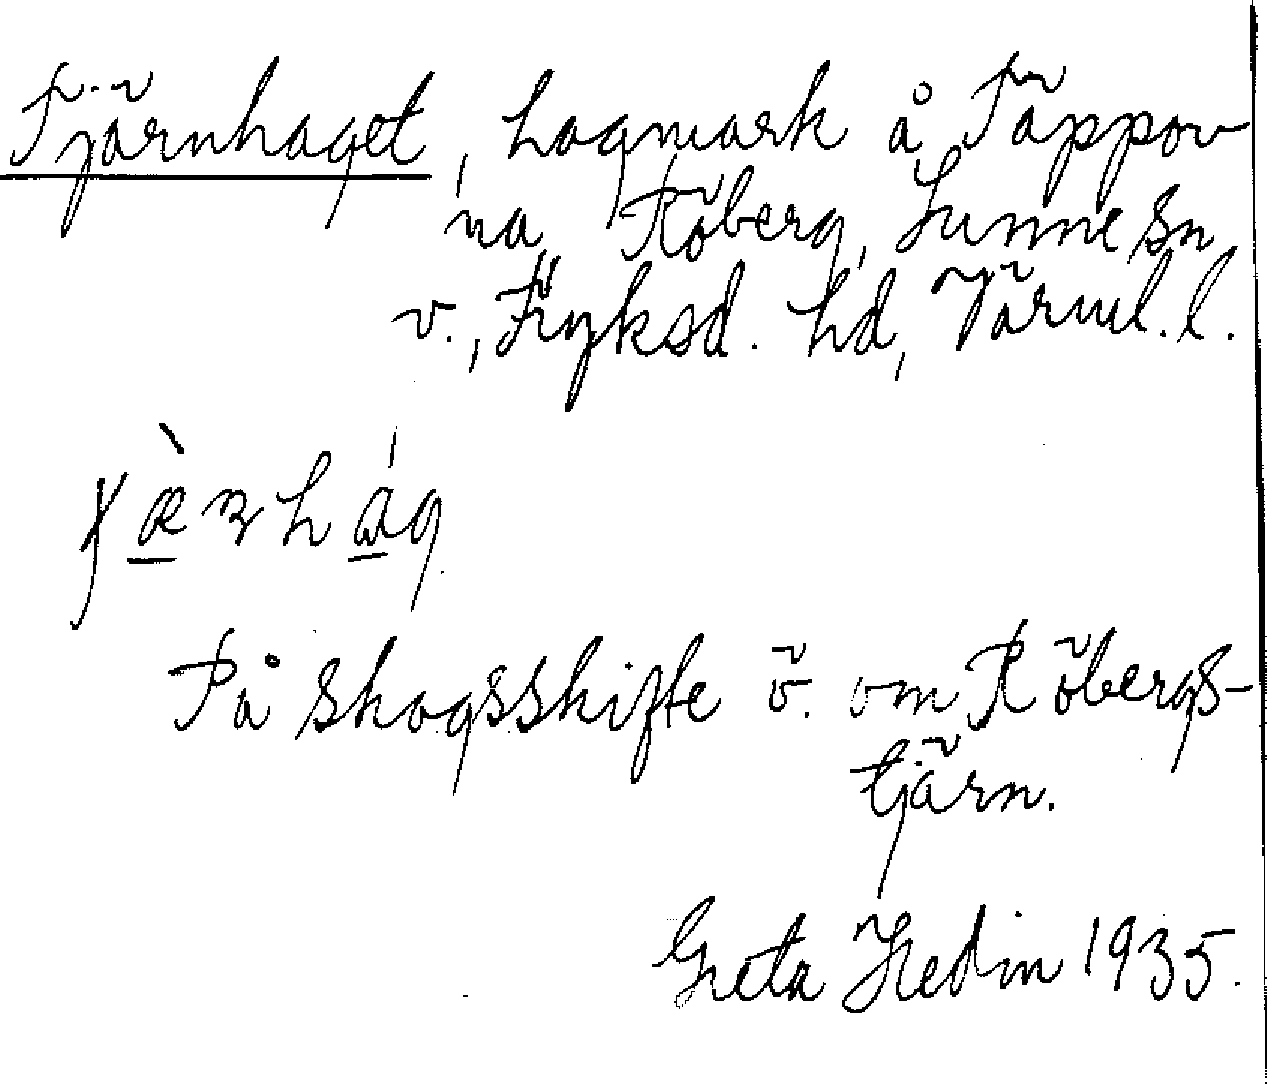 Tjärnhaget, hagmark å Täppor-
na, Röberg, Sunne sn
v., Fryksd. hd, Värml. l.
På skogsskifte ö. om Röbergs-
tjärn.
Greta Hedin 1935.